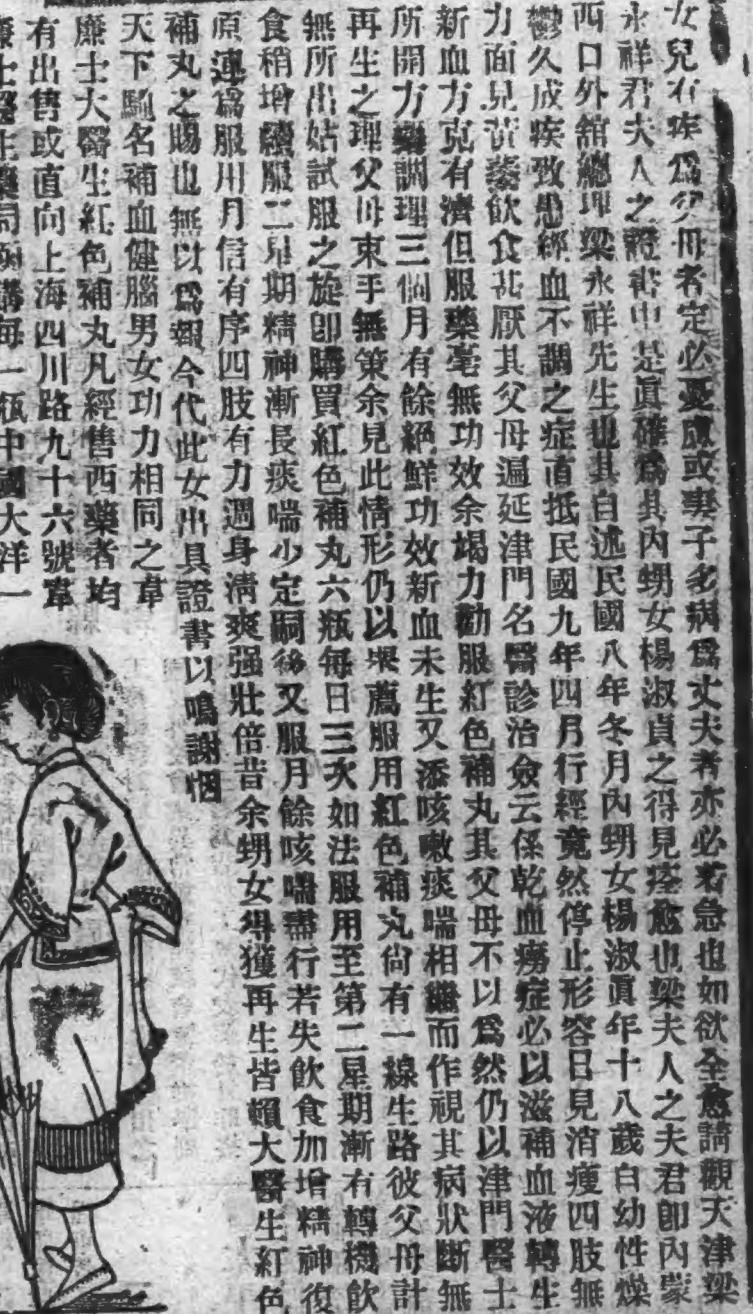 女兒有疾爲父母者定必憂慮或妻子多病爲丈夫者亦必着急也如欲全愈請觀天津梁
永祥君夫人之證書中是眞確爲其內甥女楊淑貞之得見痊愈也梁夫人之夫君卽內蒙
西口外舘總理梁永祥先生也其自述民國八年冬月內甥女楊淑眞年十八歲自幼性燥
鬱久成疾致患經血不調之症直抵民國九年四月行經竟然停止形容日見消瘦四肢無
力面見黃萎飲食甚厭其父母遍延津門名醫診治僉云係乾血癆症必以滋補血液轉生
新血方克有濟但服藥毫無功效余竭力勸服紅色補丸其父母不以爲然仍以津門醫士
所開方藥調理三個月有餘絕鮮功效新血未生又添咳嗽痰喘相繼而作視其病狀斷無
再生之理父母束手無策余見此情形仍以堅薦服用紅色補丸尙有一線生路彼父母計
無所出姑試服之旋卽購買紅色補丸六瓶每日三次如法服用至第二星期漸有轉機飲
食稍增續服二星期精神漸長痰喘少定嗣後又服月餘咳喘盡行若失飲食加增精神復
原連爲服用月信有序四肢有力週身淸爽强壯倍昔余甥女得獲再生皆賴大醫生紅色
補丸之賜也無以爲報今代此女出具證書以鳴謝悃
天下馳名補血健腦男女功力相同之韋
廉士大醫生紅色補丸凡經售西藥者均
有出售或直向上海四川路九十六號韋
廉士醫生藥局函購每一瓶中國大洋一